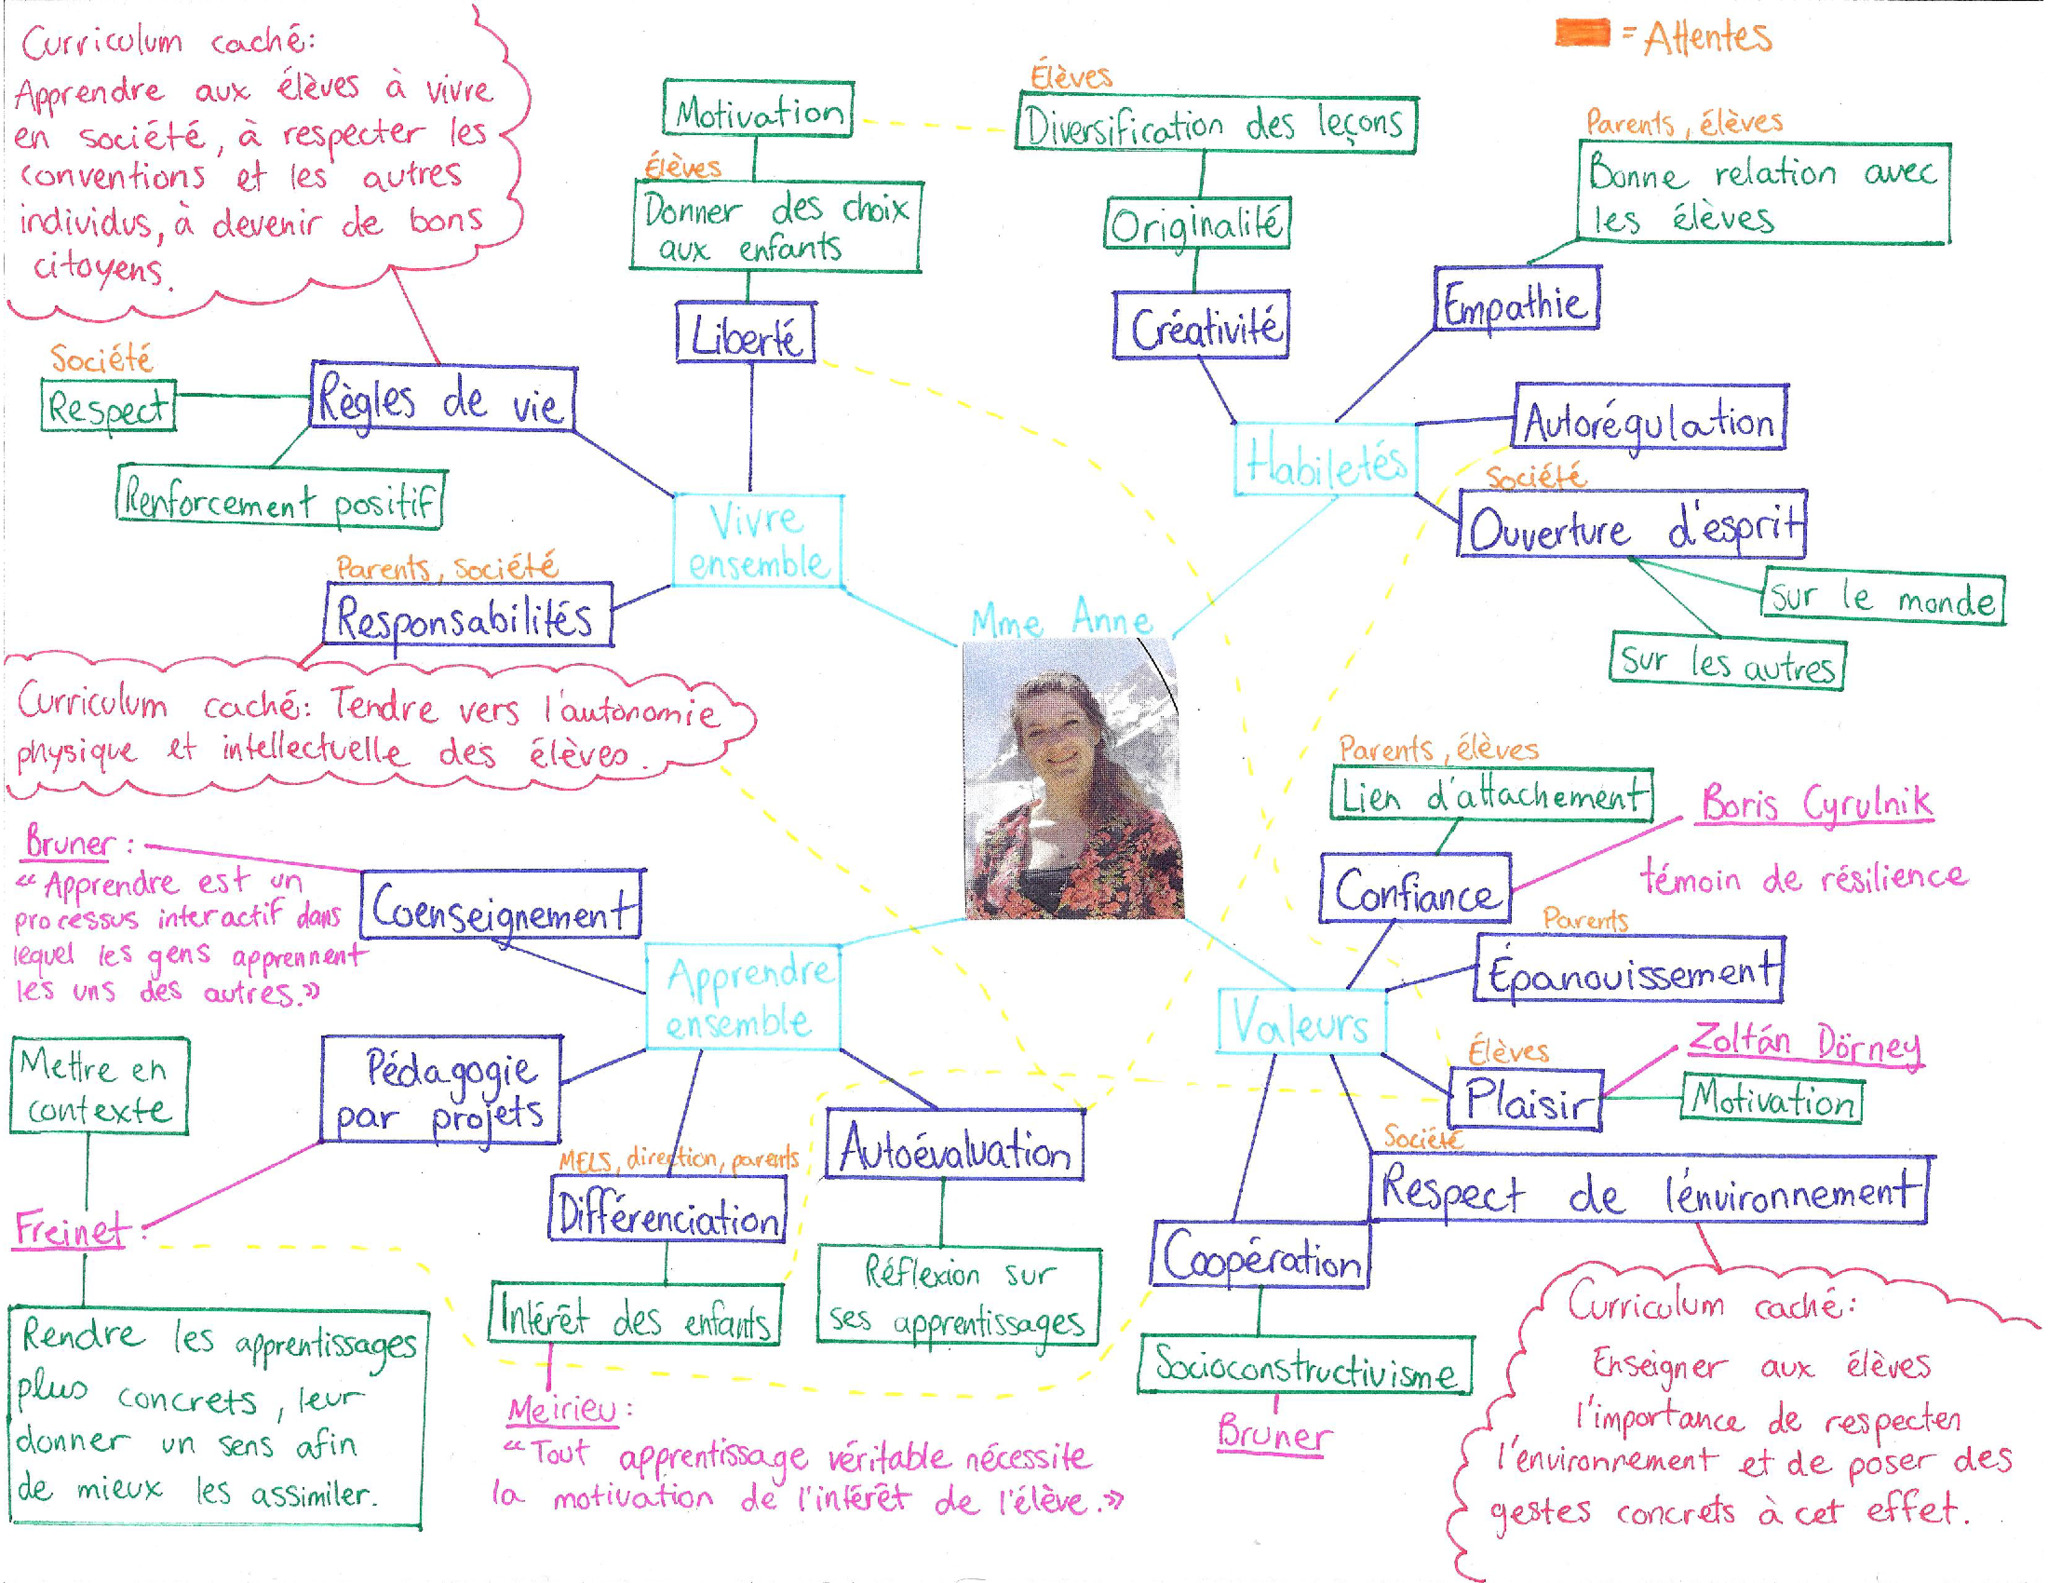 Curriculum caché:
Apprendre aux élèves à vivre
en société, à respecter les
conventions et les autres
individus, à devenir de bons
citoyens.
= Attentes
Motivation
Élèves
Donner des choix
aux enfants
Liberté
Élèves
Diversification des leçons
Originalité
Créativité
Parents, élèves
Bonne relation avec
les élèves
Empathie
Société
Respect
Règles de vie
Renforcement positif
Parents, Société
Responsabilités
Vivre
ensemble
Habiletés
Autorégulation
Société
Ouverture d'esprit
Sur le monde
Sur les autres
Curriculum caché: Tendre vers l'autonomie
physique et intellectuelle des élèves.
Mme Anne
Parents, élèves
Lien d'attachement
Boris Cyrulnik
témoin de résilience
Confiance
Parents
Épanouissement
Valeurs
Élèves
Plaisir
Zoltán Dörney
Motivation
Société
Respect de l'énvironnement
Coopération
Socioconstructivisme
Bruner
Curriculum caché:
Enseigner aux élèves
l'importance de respecten
l'environnement et de poser des
gestes concrets à cet effet.
Bruner :
"Apprendre est un
processus interactif dans
lequel les gens apprennent
les uns des autres.»
Coenseignement
Apprendre
ensemble
Pédagogie
par projets
Mettre en
contexte
Freinet :
Rendre les apprentissages
plus concrets, leur
donner un sens afin
de mieux les assimiler.
MELS, direction, parents
Différenciation
Intérêt des enfants
Meirieu :
"Tout apprentissage véritable nécessite
la motivation de l'intérêt de l'élève.»
Autoévaluation
Réflexion sur
ses apprentissages